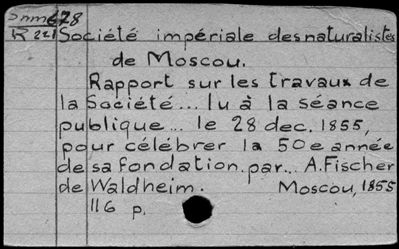 Snm 678
R 221 Société impériale des naturalistes
de Moscou.
Rapport sur les travaux de
la Société... lu à la séance
publique... le 28 dec. 1855,
pour célébrer la 50e année
de sa fondation. par... A. Fischer
de Waldheim. Moscou, 1855
116 p.